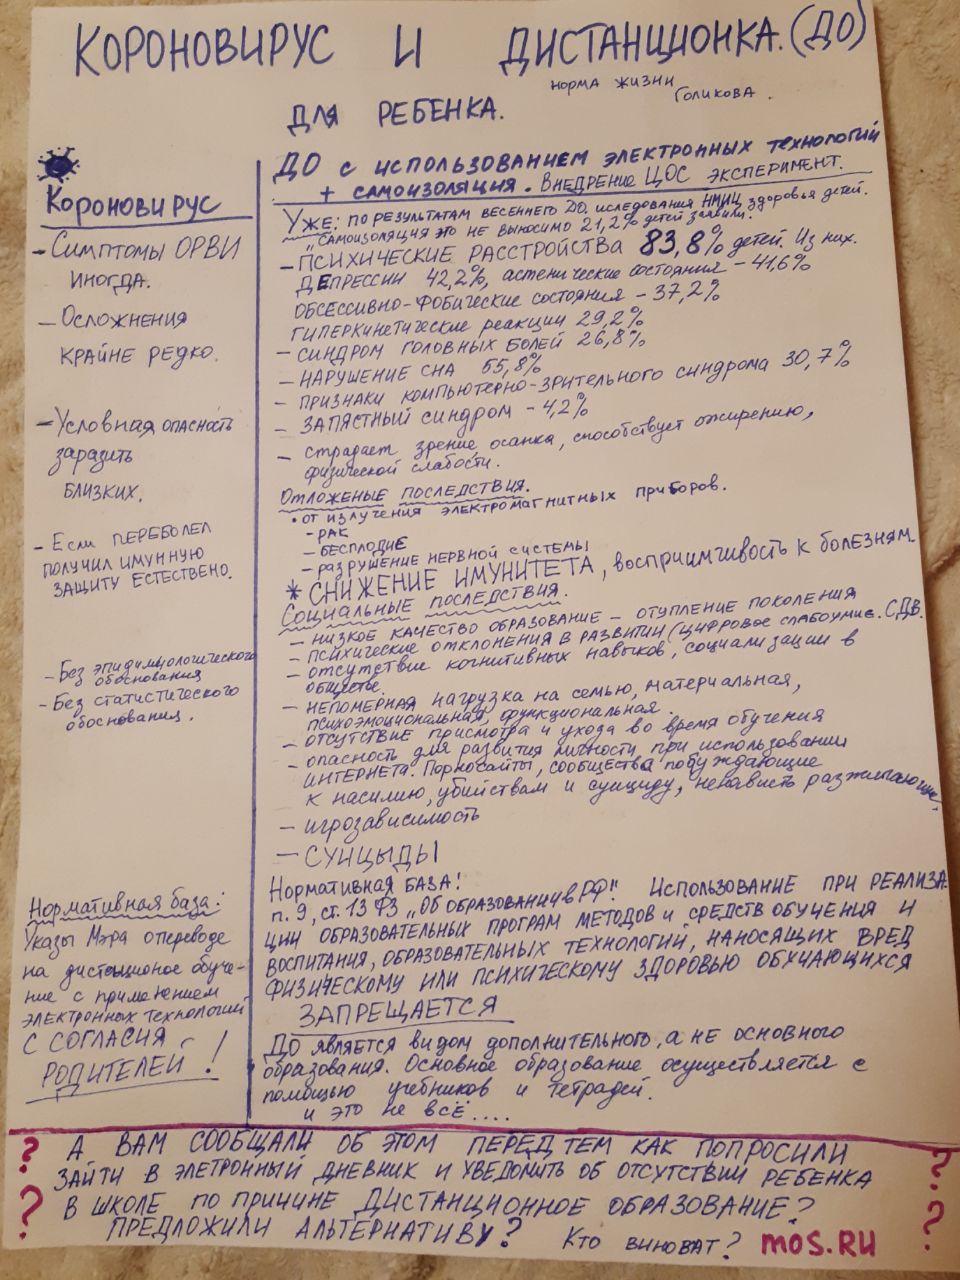 КОРОНОВИРУС И ДИСТАНЦИОНКА. (ДО)
НОРМА ЖИЗНИ
ГОЛИКОВА.
ДЛЯ РЕБЕНКА.
Короновирус
- Симптомы ОРВИ
ИНОГДА.
- Осложнения
КРАЙНЕ РЕДКО.
- Условная опасность
заразить
БЛИЗКИХ.
- Если ПЕРЕБОЛЕЛ
ПОЛУЧИЛ ИМУННУЮ
ЗАЩИТУ ЕСТЕСТВЕНО.
- Без эпидимиологического
обоснования
- Без статистического
обоснования.
Нормативная база:
Указы Мэра о переводе
на дистанционое обуче-
ние с применением
электронных технологий
С СОГЛАСИЯ
РОДИТЕЛЕЙ!
ДО С ИСПОЛЬЗОВАНИЕМ ЭЛЕКТРОННЫХ ТЕХНОЛОГИЙ
+ САМОИЗОЛЯЦИЯ. ВНЕДРЕНИЕ ЦОС ЭКСПЕРИМЕНТ.
Уже: ПО РЕЗУЛЬТАТАМ ВЕСЕННЕГО ДО. ИСЛЕДОВАНИЯ НМИЦ здоровья детей.
„САМОИЗОЛЯЦИЯ ЭТО НЕ ВЫНОСИМО 21,2% детей заявили.
- ПСИХИЧЕСКИЕ РАССТРОЙСТВА 83,8% детей. Из них.
ДЕПРЕССИИ 42,2%, астенические состояния - 41,6%
ОБСЕССИВНО-ФОБИЧЕСКИЕ СОСТОЯНИЯ - 37,2%
ГИПЕРКИНЕТИЧЕСКИЕ РЕАКЦИИ 29,2%
- СИНДРОМ ГОЛОВНЫХ БОЛЕЙ 26,8%
- НАРУШЕНИЕ СНА 55,8%
- ПРИЗНАКИ КОМПЬЮТЕРНО-ЗРИТЕЛЬНОГО СИНДРОМА 30,7%
- ЗАПЯСТНЫЙ СИНДРОМ - 4,2%
- страдает зрение осанка, способствует ожирению,
физической слабости.
ОТЛОЖЕНЫЕ ПОСЛЕДСТВИЯ.
• от излучения электромагнитных приборов.
- РАК
- БЕСПЛОДИЕ
- РАЗРУШЕНИЕ НЕРВНОЙ СИСТЕМЫ
* СНИЖЕНИЕ ИМУНИТЕТА, восприимчивость к болезням.
Социальные последствия.
- низкое качество образование - отупление поколения
- психические отклонения в развитии (цифровое слабоумие. СДВ.
- отсутствие когнитивных навыков, социализации в
обществе.
- непомерная нагрузка на семью, материальная,
психоэмоциональная, функциональная.
- отсутствие присмотра и ухода во время обучения
- опасность для развития личности при использовании
ИНТЕРНЕТА. Порносайты, сообщества побуждающие
к насилию, убийствам и суициду, ненависть разжигающие,
- игрозависимость
- СУИЦЫДЫ
Нормативная БАЗА!
п.9, ст.13 ФЗ „Об образовании в РФ". ИСПОЛЬЗОВАНИЕ ПРИ РЕАЛИЗА
ЦИИ ОБРАЗОВАТЕЛЬНЫХ ПРОГРАМ МЕТОДОВ И СРЕДСТВ ОБУЧЕНИЯ И
ВОСПИТАНИЯ, ОБРАЗОВАТЕЛЬНЫХ ТЕХНОЛОГИЙ, НАНОСЯЩИХ ВРЕД
ФИЗИЧЕСКОМУ ИЛИ ПСИХИЧЕСКОМУ ЗДОРОВЬЮ ОБУЧАЮЩИХСЯ
ЗАПРЕЩАЕТСЯ
ДО является видом дополнительного, а не основного
образования. Основное образование осуществляется с
помощью учебников и тетрадей.
и это не всё....
? А ВАМ СООБЩАЛИ ОБ ЭТОМ ПЕРЕД ТЕМ КАК ПОПРОСИЛИ ?
ЗАЙТИ В ЭЛЕТРОННЫЙ ДНЕВНИК И УВЕДОМИТЬ ОБ ОТСУТСТВИИ РЕБЕНКА
? В ШКОЛЕ ПО ПРИЧИНЕ ДИСТАНЦИОННОЕ ОБРАЗОВАНИЕ? ?
ПРЕДЛОЖИЛИ АЛЬТЕРНАТИВУ? КТО ВИНОВАТ? mos.RU